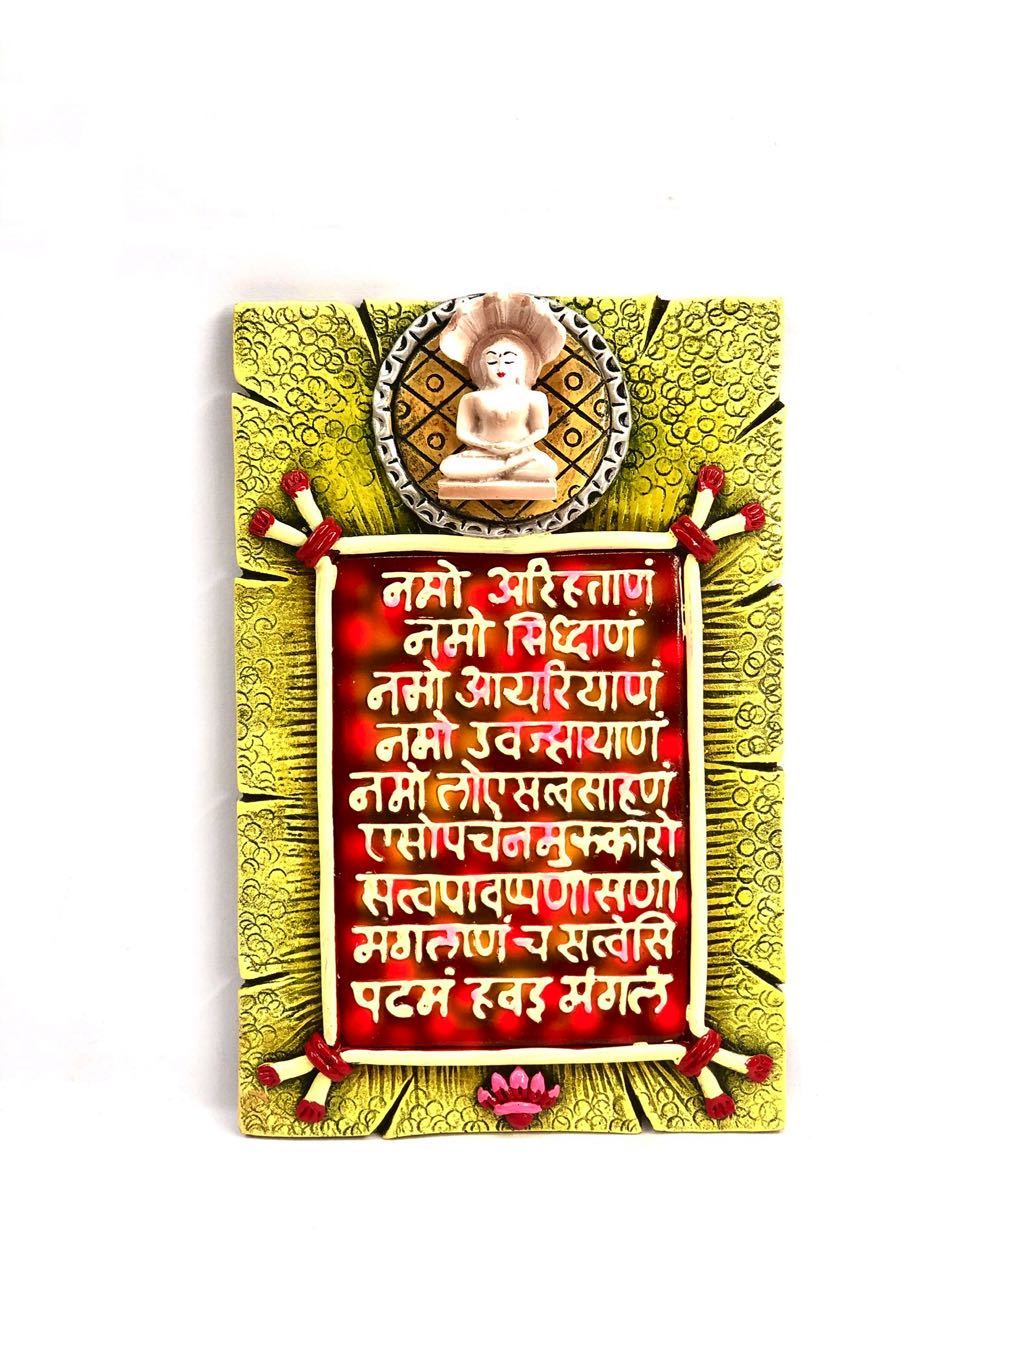 नमो अरिहताणं
नमो सिद्धाणं
नमो आयरियाणं
नमो उवज्झायाणं
नमो लोएसव्वसाहणं
एसोपचनमुक्कारो
सव्वपावप्पणासणो
मगलाणं च सव्वेसि
पढमं हवइ मंगलं